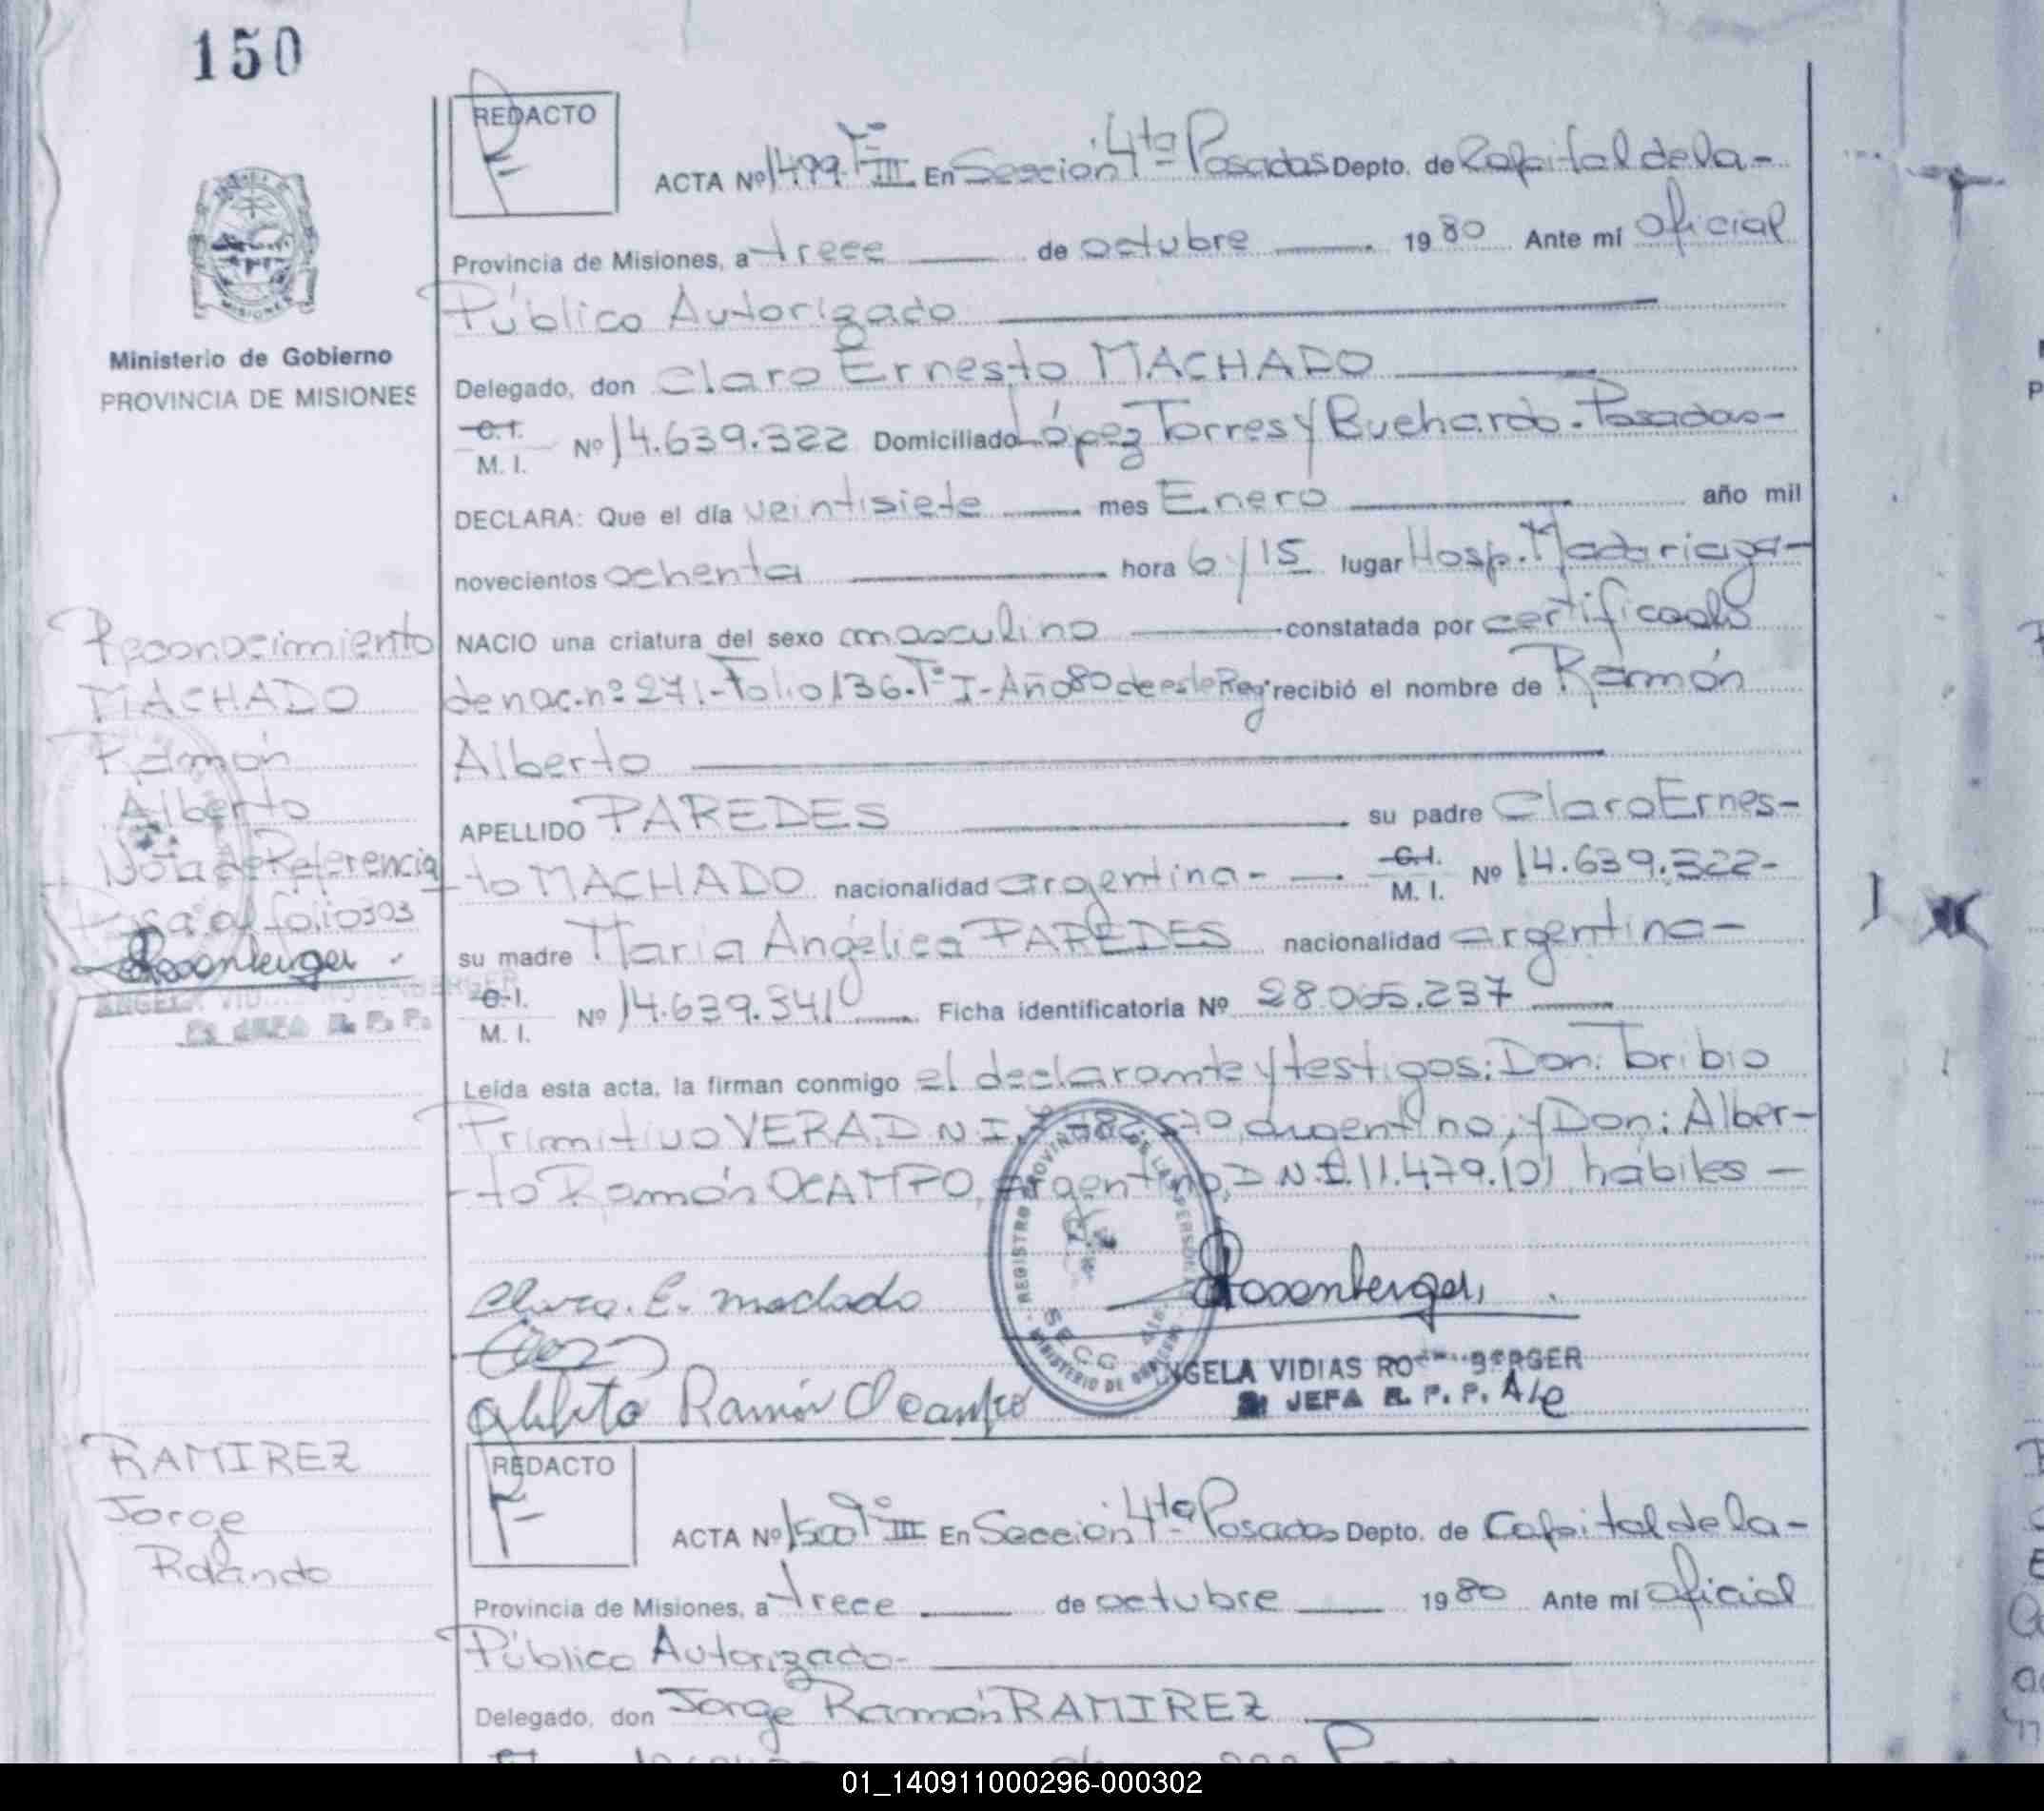 150
REDACTO
ACTA Nº 1499 Tº III En Sección 4ta Posadas Depto. de Capital de la-
Provincia de Misiones, a trece de octubre 1980 Ante mí Oficial
Público Autorizado
Ministerio de Gobierno
PROVINCIA DE MISIONES
Delegado, don Claro Ernesto MACHADO
C.I.
M. I. Nº 14.639.322 Domiciliado López Torres y Buchardo.-Posadas-
DECLARA: Que el día veintisiete mes Enero año mil
novecientos ochenta hora 6 y 15 lugar Hosp. Madariaga-
NACIO una criatura del sexo masculino constatada por certificado
de nac. nº 271-Folio 136-Tº I-Año 80 de este Reg. recibió el nombre de Ramón
Alberto
APELLIDO PAREDES su padre Claro Ernes-
to MACHADO nacionalidad argentina- C.I. M. I. Nº 14.639.322-
su madre María Angélica PAREDES nacionalidad argentina-
C.I.
M. I. Nº 14.639.341 Ficha identificatoria Nº 28.065.237
Leída esta acta, la firman conmigo el declarante y testigos: Don: Toribio
Primitivo VERA, D N I argentino; y Don: Alber-
to Ramón OCAMPO, argentino, D N I. 11.479.101 hábiles-
Reconocimiento
MACHADO
Ramón
Alberto
Nota de Referencia
Pasa al folio 303
Rosenberger
ANGELA VID
JEFA R. P. P.
REGISTRO PROVINCIAL DE LAS PERSONAS
SECC 4ta.
MINISTERIO DE GOBIERNO
Claro. E. machado
Rosenberger
ANGELA VIDIAS RO BERGER
JEFA R. P. P. A/c
Alberto Ramón Ocampo
RAMIREZ
Jorge
Rolando
REDACTO
ACTA Nº 1500 Tº III En Sección 4ta Posadas Depto. de Capital de la-
Provincia de Misiones, a trece de octubre 1980 Ante mí Oficial
Público Autorizado-
Delegado, don Jorge Ramón RAMIREZ
01_140911000296-000302